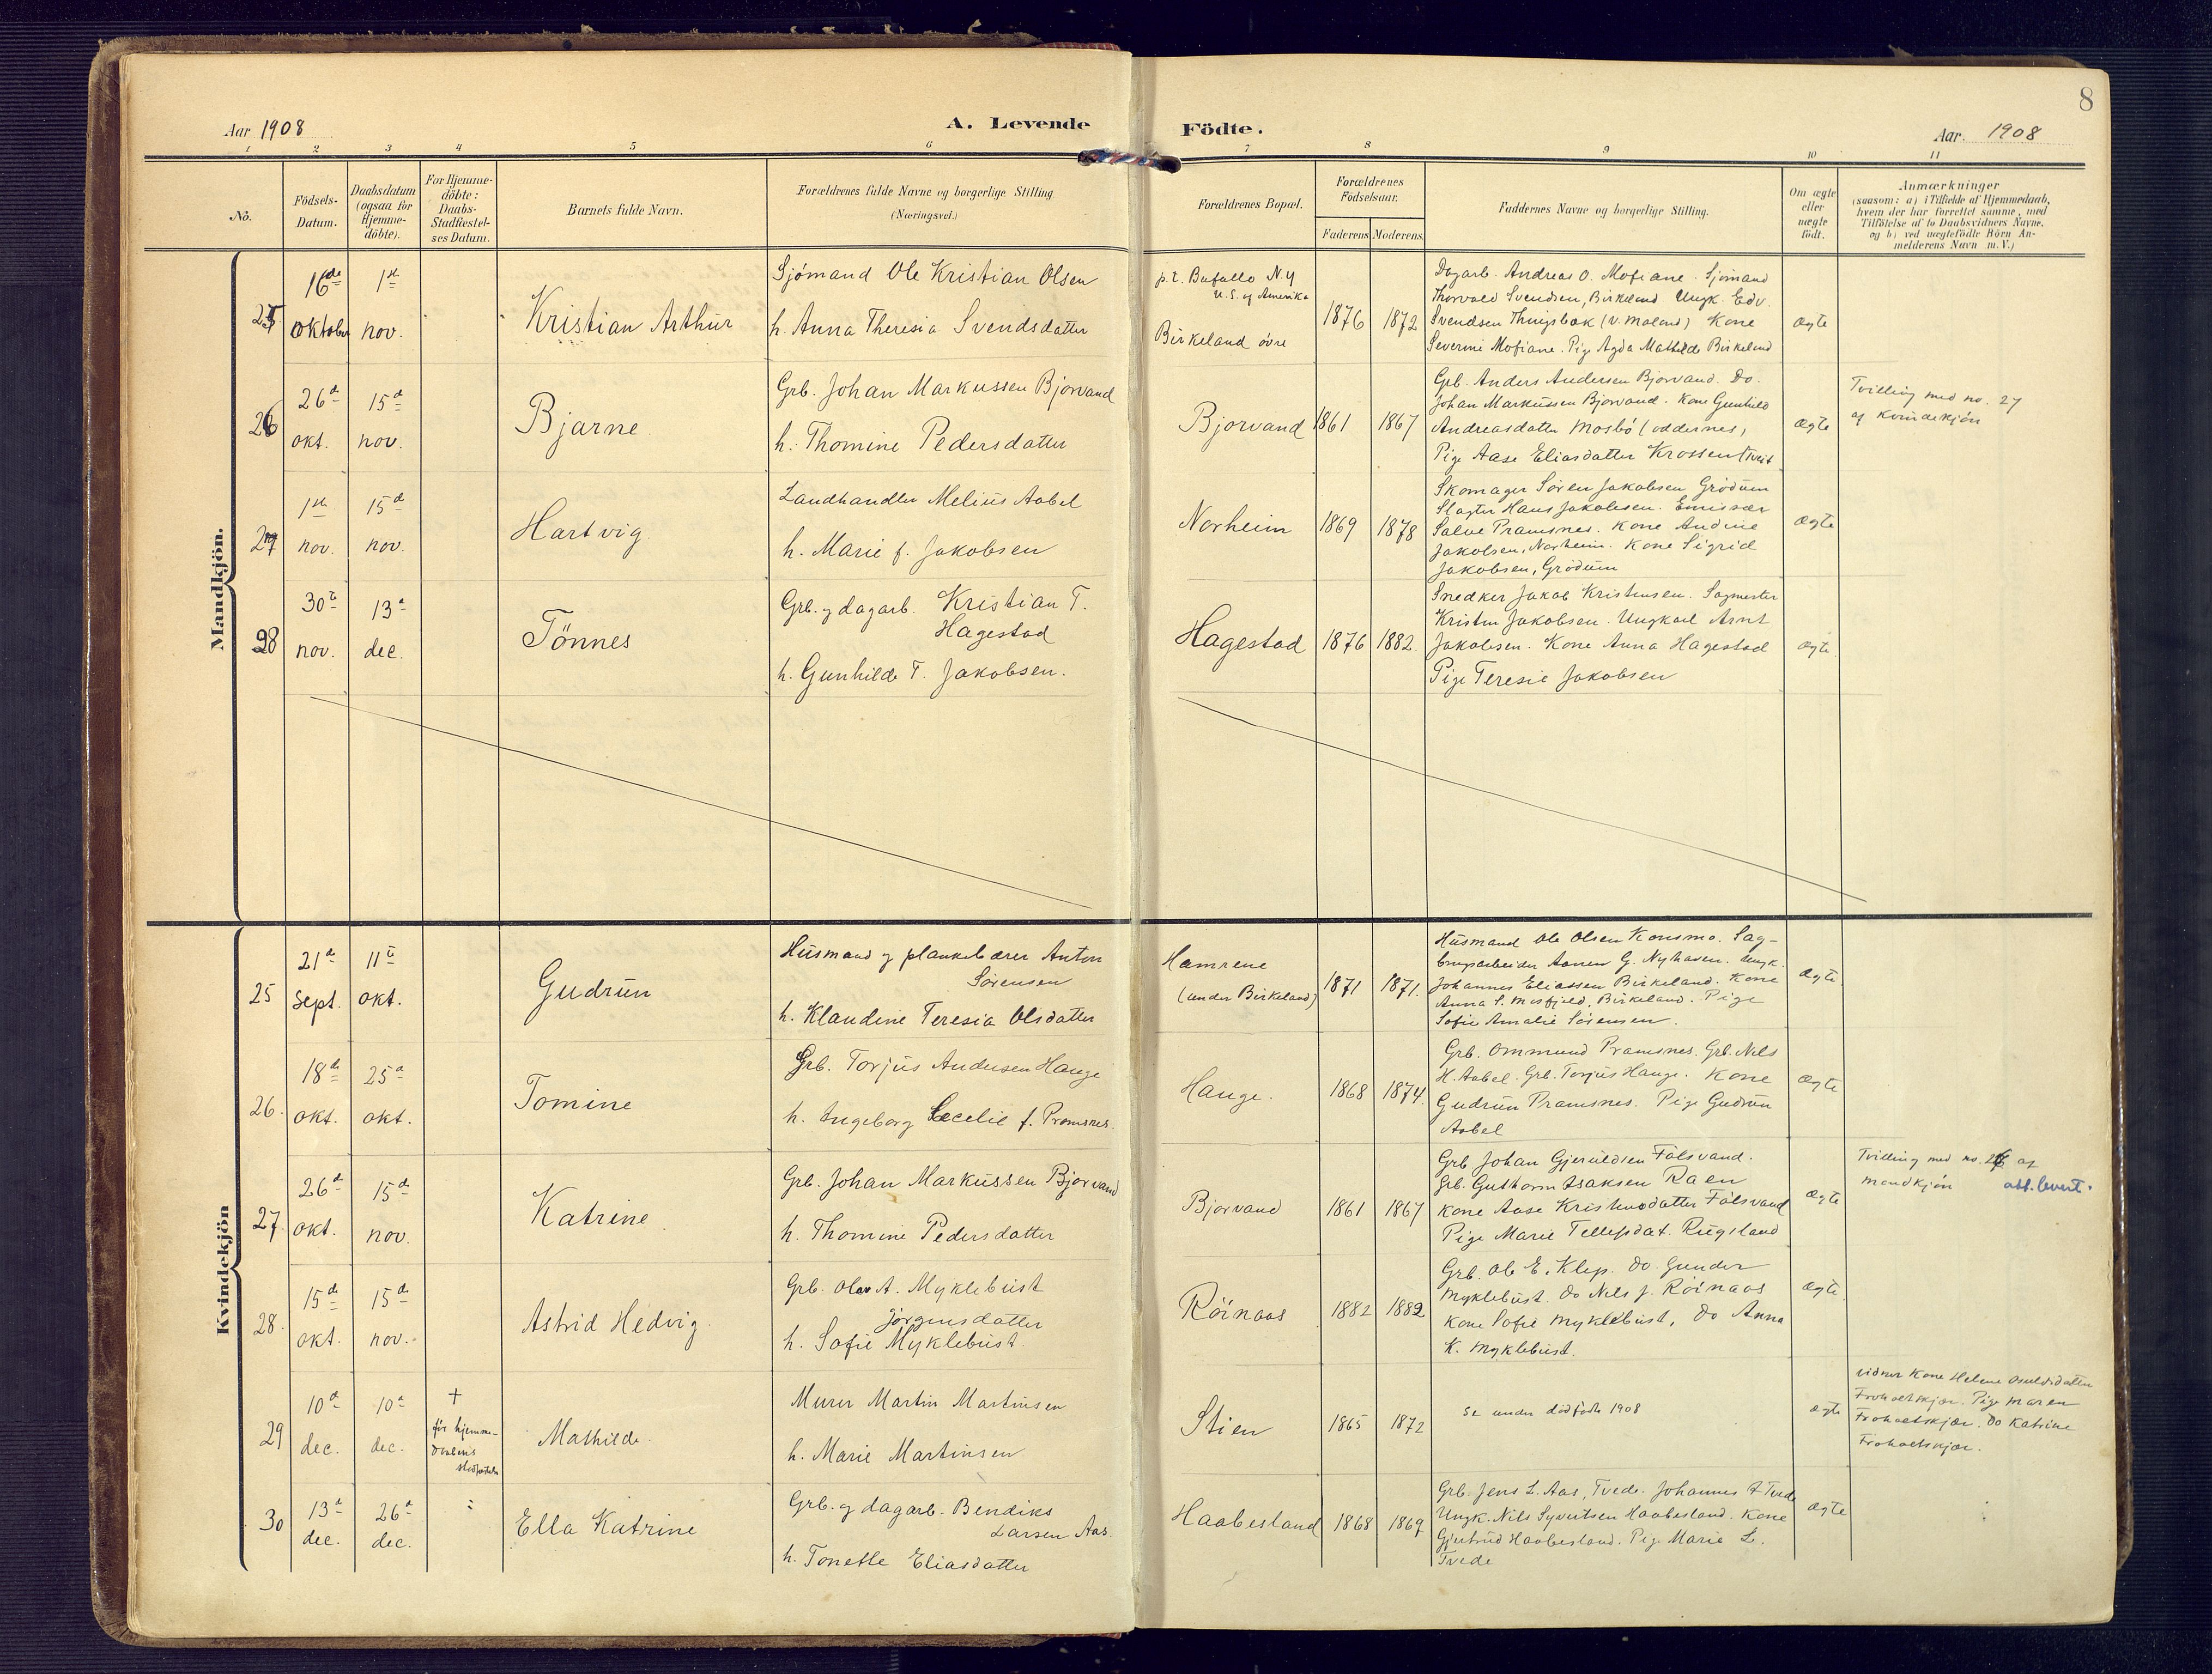 8
Aar 1908
A. Levende
Födte.
Aar. 1908
1 2 3 4 5 6 7 8 9 10 11
No.
Födsels-
Datum.
Daabsdatum
(ogsaa for
Hjemme-
döbte).
For Hjemme-
döbte:
Daabs-
Stadfæstel-
ses Datum.
Barnets fulde Navn.
Forældrenes fulde Navne og borgerlige Stilling
(Næringsvei.)
Forældrenes Bopæl.
Forældrenes
Födselsaar.
Faderens
Moderens.
Faddernes Navne og borgerlige Stilling.
Om ægte
eller
uægte
födt.
Anmærkninger
(saasom: a) i Tilfælde af Hjemmedaab,
hvem der har forrettet samme, med
Tilföielse af to Daabsvidners Navne,
og b) ved uægtefödte Börn An-
melderens Navn m.V.)
Mandkjön.
25
16de
oktober
1ste
nov.
Kristian Arthur
Sjömand Ole Kristian Olsen
h. Anna Theresia Svendsdatter
p.t. Bufallo N.Y
U.S. of Amerika
Birkeland övre
1876
1872
Dagarb. Andreas O. Mofiane. Sjömand
Thorvald Svendsen, Birkeland Ungk. Edv.
Svendsen (V. Moland) Kone
Severine Mofiane. Pige Agda Mathilde Birkeland
ægte
26
26d
okt.
15d
nov.
Bjarne
Grb. Johan Markussen Bjorvand
h. Thomine Pedersdatter
Bjorvand
1861
1867
Grb. Anders Andersen Bjorvand. Do.
Johan Markussen Bjorvand. Kone Gunhild
Andreasdatter Mosbö (oddernes),
Pige Aase Eliasdatter Krossen
ægte
Tvilling med no. 27
af Kvindekjön
27
1ste
nov.
15d
nov.
Hartvig
Landhandler Melius Aabel
h. Marie f. Jakobsen
Norheim
1869
1878
Skomager Sören Jakobsen Grödum
Slagter Hans Jakobsen. Emissær
Salve Pramsnes. Kone Andrine
Jakobsen, Norheim. Kone Sigrid
Jakobsen, Grödum
ægte
28
30te
nov.
13d
dec.
Tönnes
Grb. og dagarb. Kristian T.
Hagestad
h. Gunhilde T. Jakobsen.
Hagestad
1876
1882
Snedker Jakob Kristensen. Sagmester
Kristen Jakobsen. Ungkarl Arnt
Jakobsen. Kone Anna Hagestad
Pige Teresie Jakobsen
ægte
Kvindekjön
25
21d
Sept.
11te
okt.
Gudrun
Husmand og plankebærer Anton
Sörensen
h. Klaudine Teresia Olsdatter
Hamrene
(under Birkeland)
1871
1871.
Husmand Ole Olsen Konsmo. Sag-
brugsarbeider Aanen G. Nyhaven. Ungk.
Johannes Eliassen Birkeland. Kone
Anna S. Mosfjeld, Birkeland. Pige
Sofie Amalie Sörensen.
ægte
26.
18de
okt.
25d
okt.
Tomine
Grb. Torjus Andersen Hauge
h. Ingeborg Secelie f. Pramsnes.
Hauge.
1868
1874.
Grb. Ommund Pramsnes. Grb. Nils
H. Aabel. Grb. Torjus Hauge. Kone
Gudrun Pramsnes. Pige Gudrun
Aabel
ægte
27.
26d
okt.
15d
nov.
Katrine.
Grb. Johan Markussen Bjorvand
h. Thomine Pedersdatter
Bjorvand
1861
1867
Grb Johan Gjeruldsen Fälsvand.
Grb. Guthorm Isaksen Raen
Kone Aase Kristensdatter Fälsvand
Pige Marie Tellefsdat. Rugsland
ægte
Tvilling med no. 26 af
mandkjön
att. levert.
28.
15de
okt.
15de
nov.
Astrid Hedvig.
Grb. Olav A. Myklebust
Jörgensdatter
h. Sofie Myklebust.
Röinaas
1882
1882
Grb. Ole E. Klep. do. Gunder
Myklebust. do Nels J. Röinaas
Kone Sofie Myklebust, do Anna
K. Myklebust.
ægte.
29
10d
dec.
10d
dec.
+
för hjemme-
daabens
Mathilde.
Murer Martin Martinsen
h. Marie Martinsen
Stien
1865
1872
Se under dödfödte 1908
ægte
vidner Kone Helene Osuldsdatter
Frohoeltskjær. Pige Maren
Frohoeltskjær. do Katrine
Frohoeltskjær.
30
13d
dec.
26d
dec.
Ella Katrine
Grb. og dagarb. Bendiks
Larsen Aas.
h. Tonette Eliasdatter
Haabesland
1868
1869
Grb. Jens L. Aas, Tvede. Johannes Tvede
Ungk. Nils Syvertsen Haabesland. Kone
Gjertrud Haabesland. Pige Marie L.
Tvede
ægte